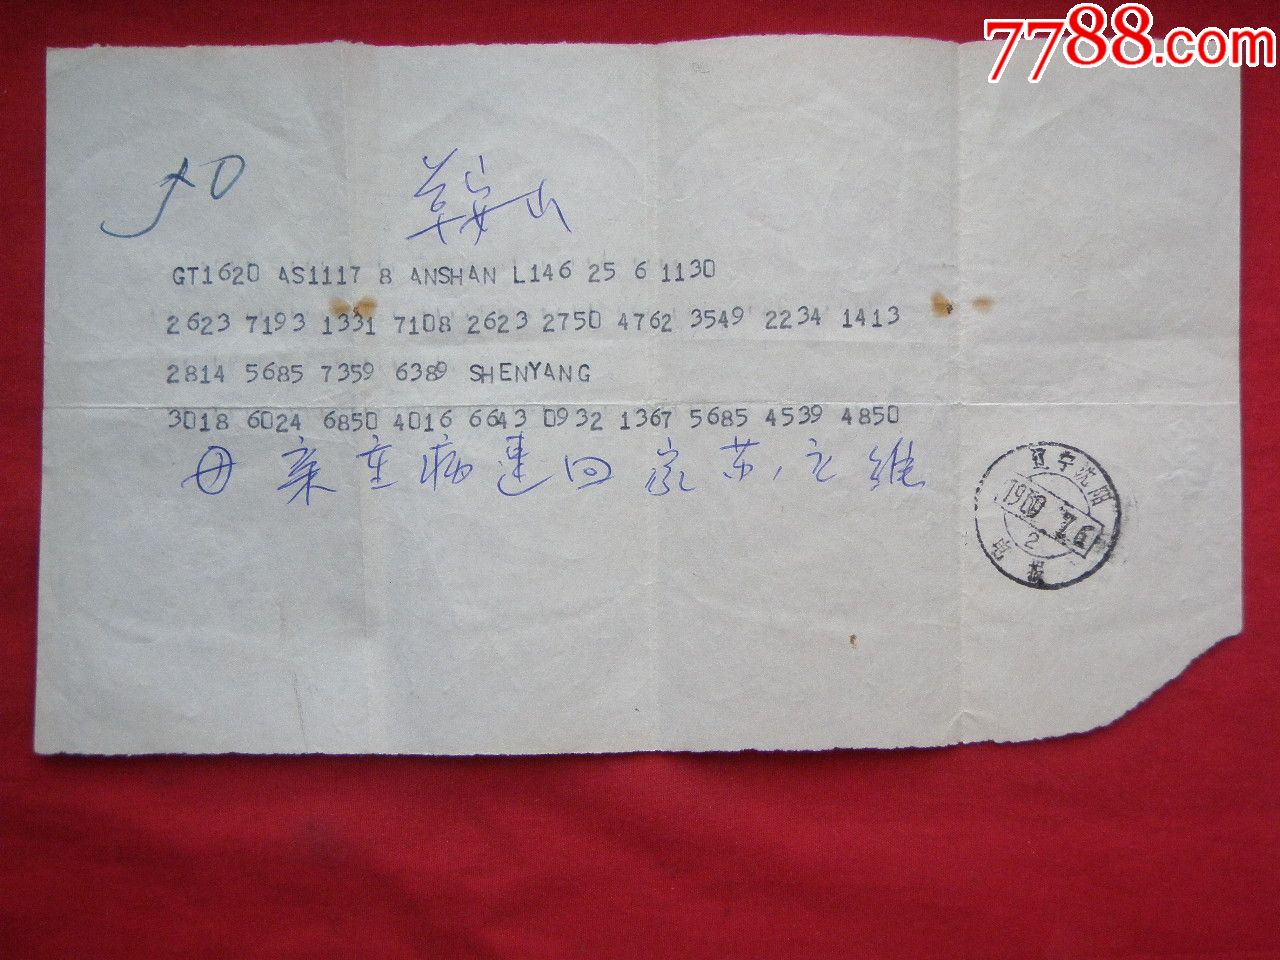 7788.com
鞍山
GT1620 AS1117 8 ANSHAN L146 25 6 1130
2623 7193 1331 7108 2623 2750 4762 3549 2234 1413
2814 5685 7359 6389 SHENYANG
3018 6024 6850 4016 6643 0932 1367 5685 4539 4850
母亲重病速回家苏立维
辽宁沈阳
7.6
2
电报